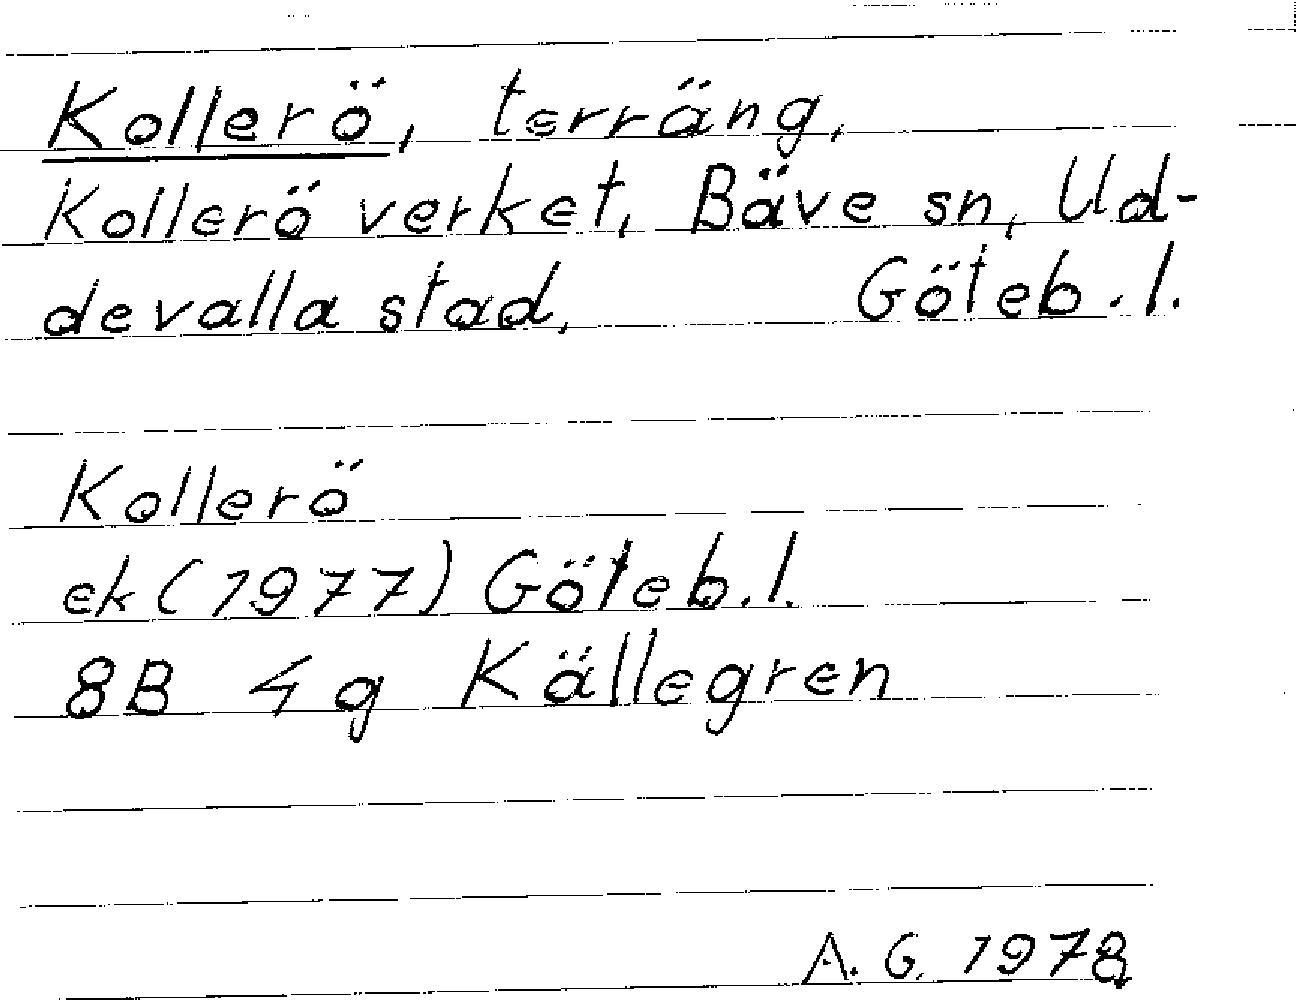 Kollerö, terräng,
Kollerö verket, Bäve sn, Ud-
devalla stad, Göteb. l.
Kollerö
ek (1977) Göteb. l.
8B 4g Källegren
A. G. 1978